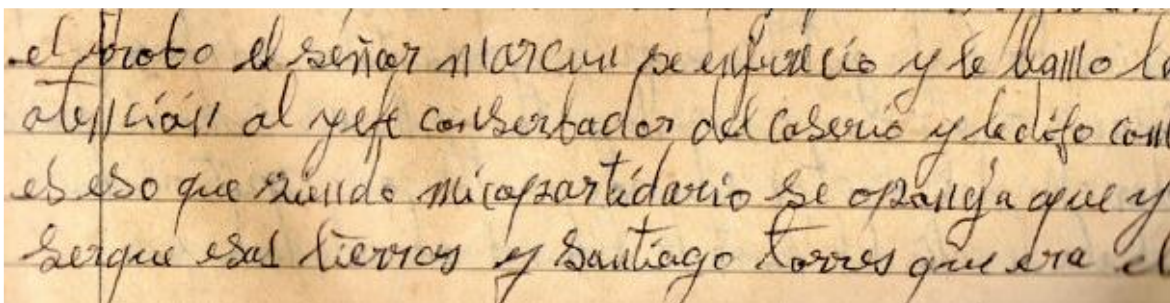 el señor marcus se enfurecio y le llamo la
atencion al yefe conserbador del caserio y le difo com
es eso que siendo micopartidario se oponga que y
serque esas tierras y Santiago torres que era el